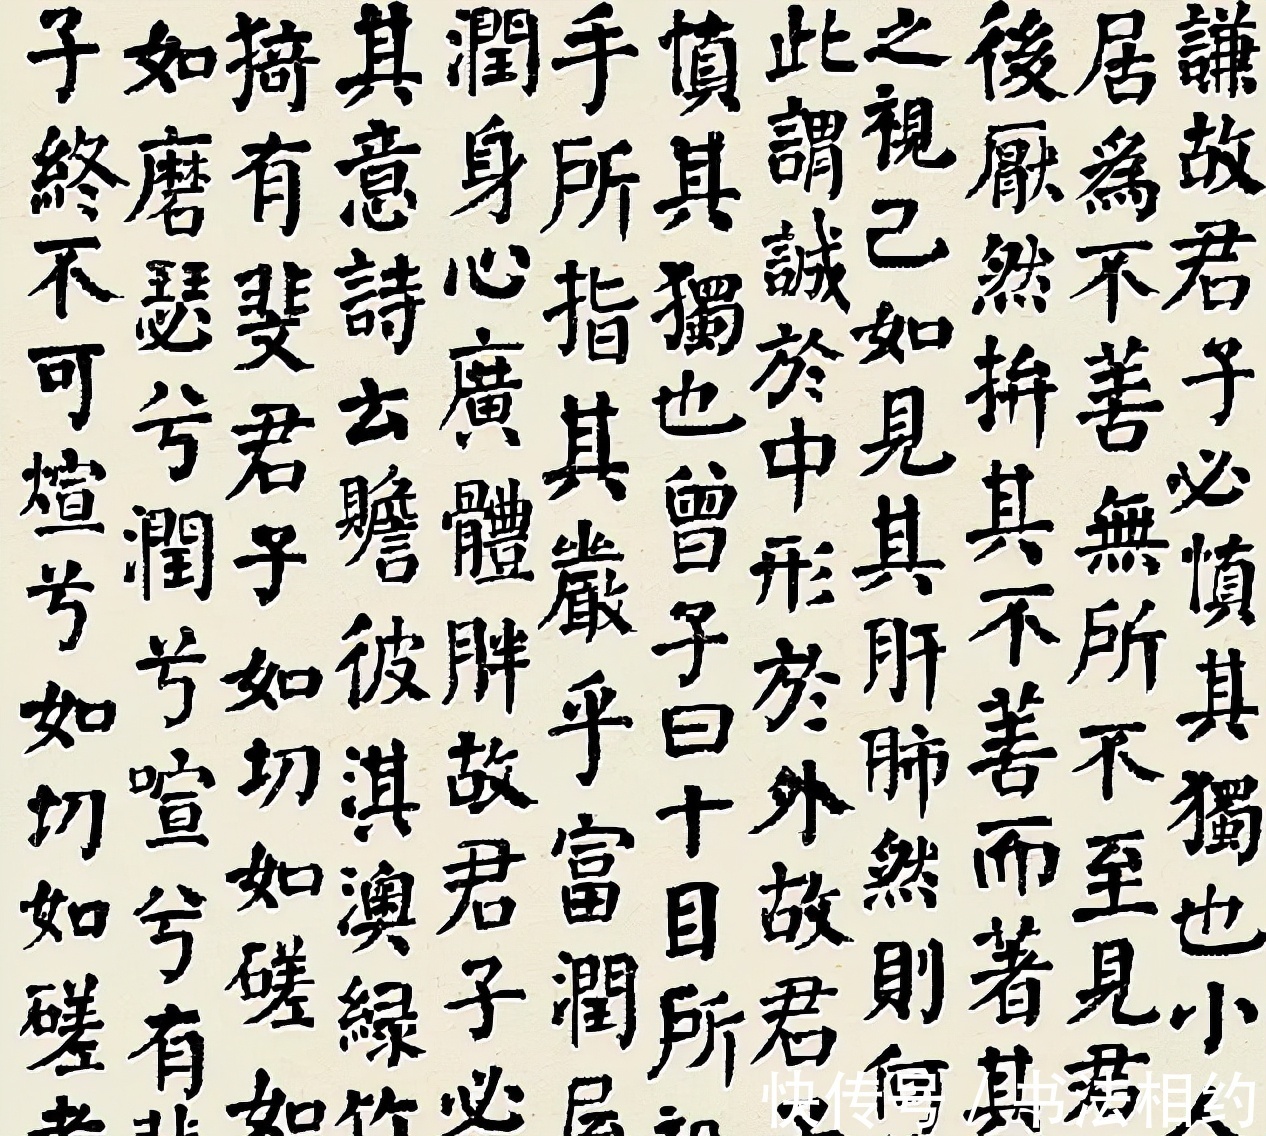 謙故君子必慎其獨也小
居為不善無所不至見君
後厭然揜其不善而著其
之視己如見其肝肺然則何
此謂誠於中形於外故君
慎其獨也曾子曰十目所
手所指其嚴乎富潤屋
潤身心廣體胖故君子必
其意詩云贍彼淇澳緑竹
猗有斐君子如切如磋如
如磨瑟兮潤兮喧兮有斐
子終不可煊兮如切如磋者
快传号 / 书法相约